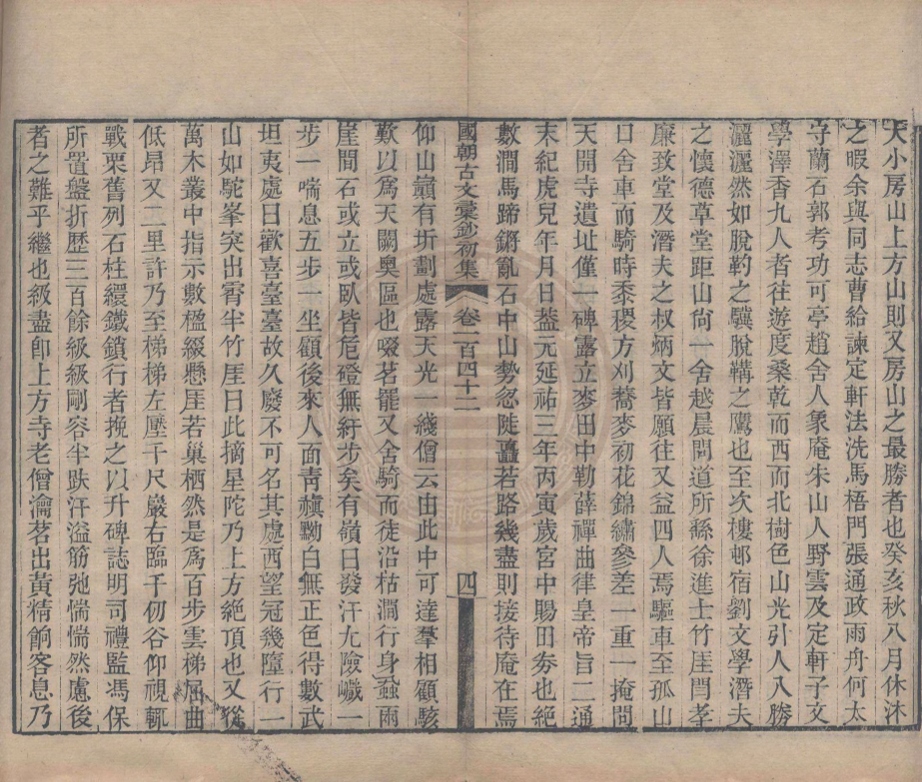 大小房山上方山則又房山之最勝者也癸亥秋八月休沐
之暇余與同志曹給諫定軒法洗馬梧門張通政雨舟何太
守蘭石郭考功可亭趙舍人象庵朱山人野雲及定軒子文
學澤香九人者往遊度桑乾而西而北樹色山光引人入勝
灑灑然如脫䩛之驥脫鞲之鷹也至次樓邨宿劉文學潛夫
之懷德草堂距山尙一舍越晨問道所繇徐進士竹厓閆孝
廉致堂及潛夫之叔炳文皆願往又益四人焉驅車至孤山
口舍車而騎時黍稷方刈蕎麥初花錦繡參差一重一掩問
天開寺遺址僅一碑露立麥田中勒薛禪曲律皇帝旨二通
末紀虎兒年月日葢元延祐三年丙寅歲宮中賜田劵也絕
數澗馬蹄鏘亂石中山勢忽陡矗若路幾盡則接待庵在焉
國朝古文彙鈔初集
卷二百四十二
四
仰山巔有圻劃處露天光一綫僧云由此中可達羣相顧駭
歎以爲天關奧區也啜茗罷又舍騎而徒沿枯澗行身蝨兩
崖間石或立或臥皆危磴無紆步矣有嶺曰發汗尢險巇一
步一喘息五步一坐顧後來人面靑䫲黝白無正色得數武
坦夷處曰歡喜臺臺故久廢不可名其處西望冠幾墮行一
山如駝峯突出霄半竹厓曰此摘星陀乃上方絕頂也又從
萬木叢中指示數楹綴懸厓若巢栖然是爲百步雲梯屈曲
低昂又二里許乃至梯梯左壓千尺巖右臨千仞谷仰視輒
戰栗舊列石柱繯鐵鎖行者挽之以升碑誌明司禮監馮保
所置盤折歷三百餘級級剛容半趺汗溢筋弛惴惴然慮後
者之難乎繼也級盡卽上方寺老僧瀹茗出黃精餉客息乃